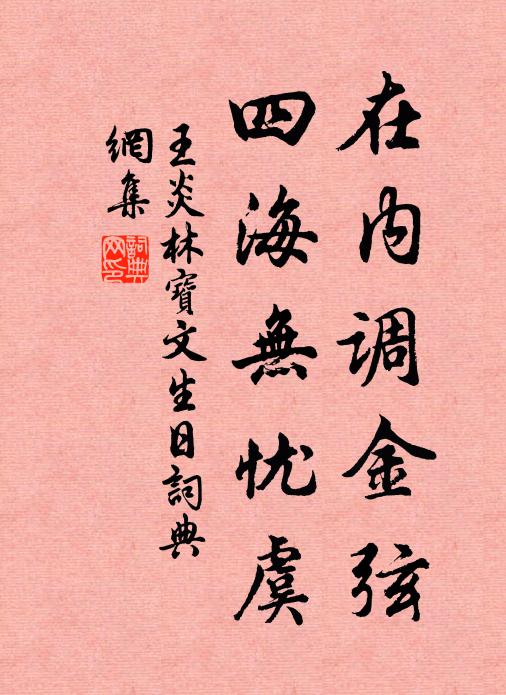 在内调金弦
四海無忧虞
王炎林寶文生日詞典
網集
詞典網印